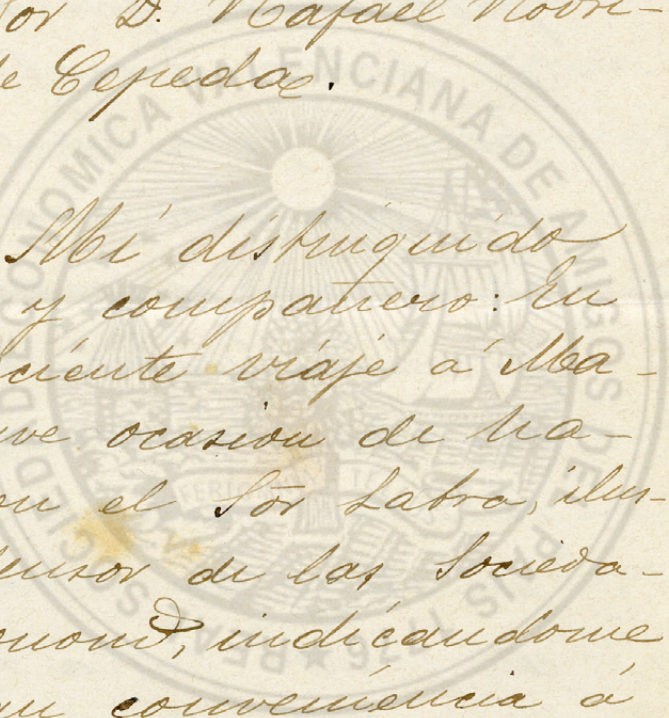 or D. Rafael Rodri-
e Cepeda.
Mi distinguido
y compañero: En
ciente viaje á Ma-
ve ocasion de ha-
on el Sor Labra, ilus-
ensor de las Socieda-
onomᵈ, indicandome
an conveniencia á
REAL SOCIEDAD ECONOMICA VALENCIANA DE AMIGOS DEL PAIS 1776